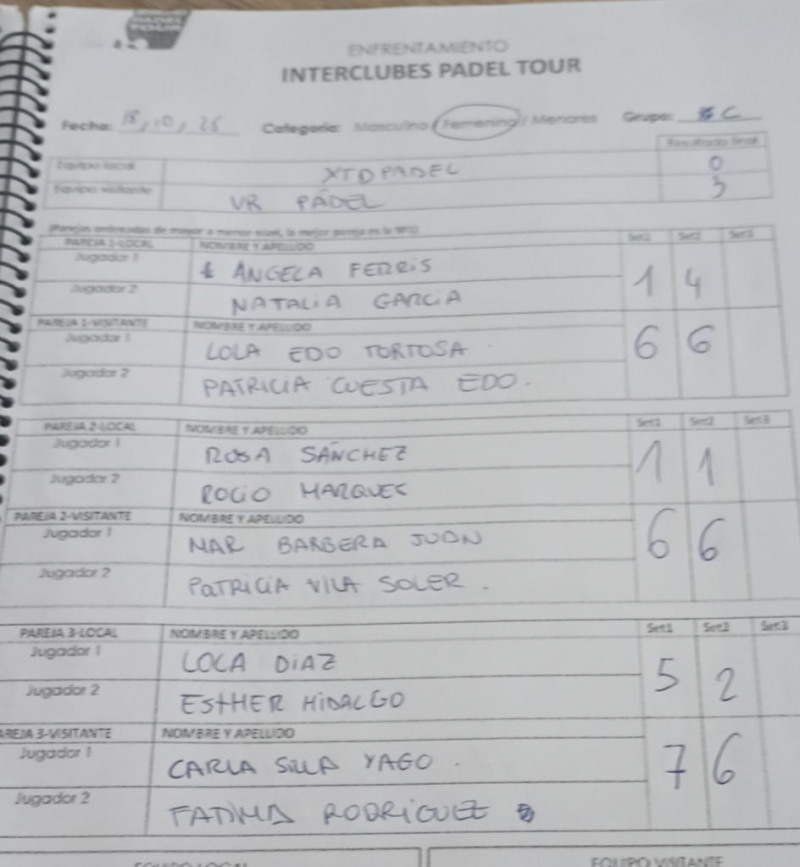 PADEL TOUR
ENFRENTAMIENTO
INTERCLUBES PADEL TOUR
Fecha: 18, 10, 25 Categoría: Masculino / Femenino / Menores Grupo: C
Resultado final
Equipo local XTDPADEL 0
Equipo visitante VR PÁDEL 3
(Parejas ordenadas de mayor a menor nivel, la mejor pareja es la Nº1)
PAREJA 1-LOCAL NOMBRE Y APELLIDO Set1 Set2 Set3
Jugador 1 ANGELA FERRIS 1 4
Jugador 2 NATALIA GARCIA
PAREJA 1-VISITANTE NOMBRE Y APELLIDO
Jugador 1 LOLA EDO TORTOSA 6 6
Jugador 2 PATRICIA CUESTA EDO.
PAREJA 2-LOCAL NOMBRE Y APELLIDO Set1 Set2 Set3
Jugador 1 ROSA SÁNCHEZ 1 1
Jugador 2 ROCIO MARQUES
PAREJA 2-VISITANTE NOMBRE Y APELLIDO
Jugador 1 MAR BARBERA JUAN 6 6
Jugador 2 PATRICIA VILA SOLER.
PAREJA 3-LOCAL NOMBRE Y APELLIDO Set1 Set2 Set3
Jugador 1 LOLA DIAZ 5 2
Jugador 2 ESTHER HIDALGO
PAREJA 3-VISITANTE NOMBRE Y APELLIDO
Jugador 1 CARLA SILLA YAGO. 7 6
Jugador 2 FATIMA RODRIGUEZ
EQUIPO LOCAL EQUIPO VISITANTE